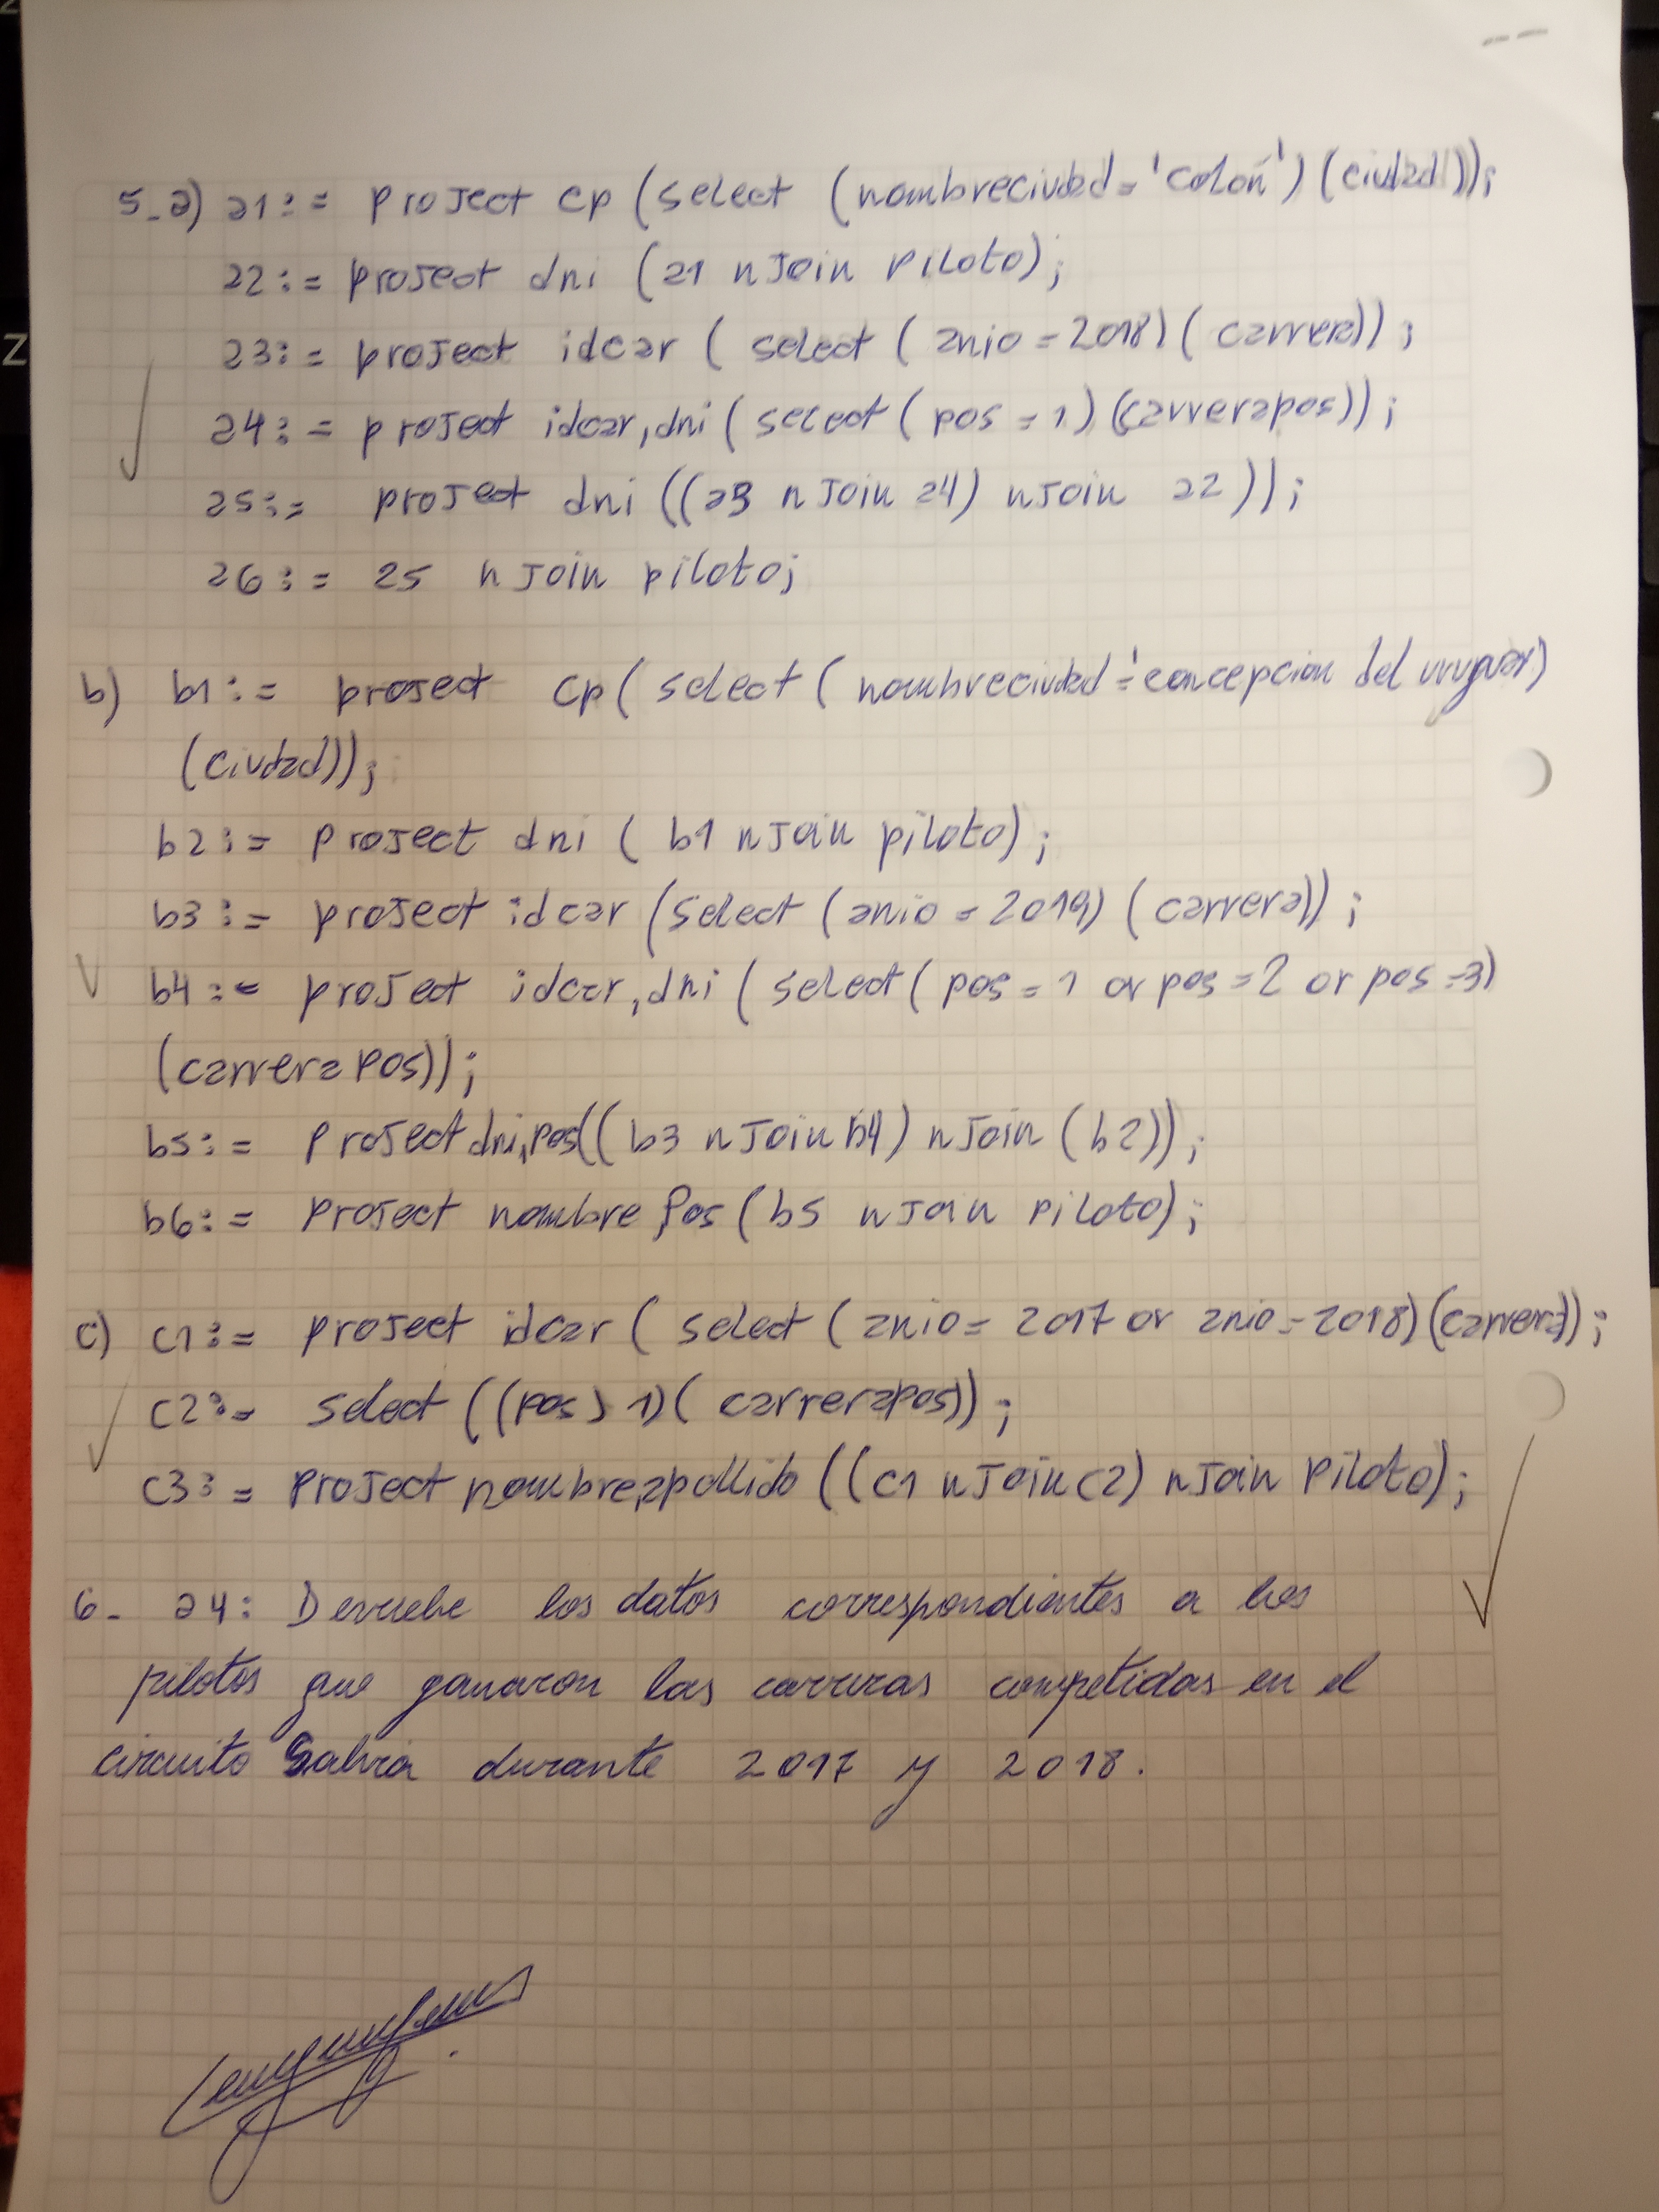 5-a) a1:= project cp (select (nombreciudad='colon') (ciudad));
a2:= project dni (a1 njoin piloto);
a3:= project idcar ( select ( anio = 2018) ( carrera)) ;
a4:= project idcar, dni ( select ( pos = 1) (carrerapos)) ;
a5:= project dni ((a3 njoin a4) njoin a2 )) ;
a6:= a5 njoin piloto;
b) b1:= project cp ( select ( nombreciudad='concepcion del uruguay)
(ciudad));
b2:= project dni ( b1 njoin piloto) ;
b3:= project idcar (select (anio = 2019) ( carrera)) ;
b4:= project idcar, dni ( select ( pos = 1 or pos = 2 or pos = 3)
(carrerapos)) ;
b5:= project dni, pos(( b3 njoin b4) njoin (b2)) ;
b6:= project nombre, pos ( b5 njoin piloto) ;
c) c1:= project idcar ( select ( anio = 2017 or anio = 2018) (carrera)) ;
c2:= select ((pos > 1) ( carrerapos)) ;
c3:= project nombre, apellido ((c1 njoin c2) njoin piloto) ;
6- a4: Devuelve los datos correspondientes a los
pilotos que ganaron las carreras competidas en el
circuito durante 2017 y 2018.